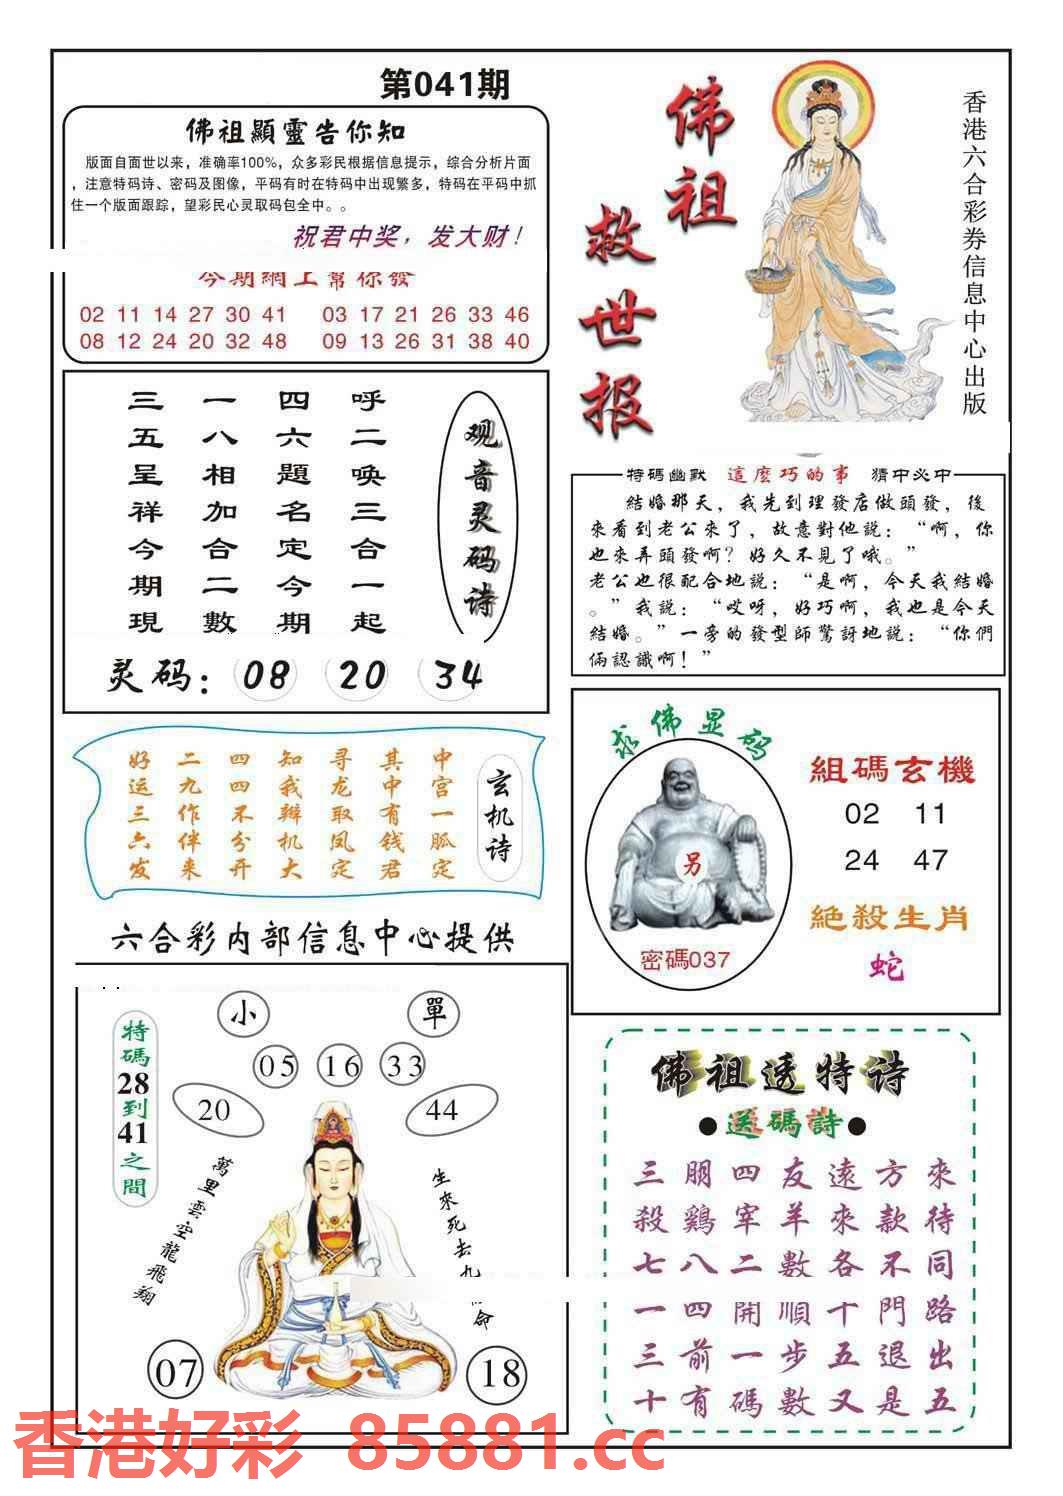 第041期
佛祖顯靈告你知
版面自面世以来，准确率100%，众多彩民根据信息提示，综合分析片面
，注意特码诗、密码及图像，平码有时在特码中出现繁多，特码在平码中抓
住一个版面跟踪，望彩民心灵取码包全中。。
祝君中奖，发大财！
今期網上幫你發
02 11 14 27 30 41 03 17 21 26 33 46
08 12 24 20 32 48 09 13 26 31 38 40
佛祖
救世报
香港六合彩券信息中心出版
观音灵码诗
呼二唤三合一起
四六題名定今期
一八相加合二數
三五呈祥今期現
灵码：08 20 34
特碼幽默 這麽巧的事 猜中必中
結婚那天，我先到理發店做頭發，後
來看到老公來了，故意對他説：“啊，你
也來弄頭發啊？好久不見了哦。”
老公也很配合地説：“是啊，今天我結婚
。”我説：“哎呀，好巧啊，我也是今天
結婚。”一旁的發型師驚訝地説：“你們
倆認識啊！”
玄机诗
中宫一胍定
其中有钱君
寻龙取凤定
知我辩机大
四四不分开
二九作伴来
好运三六发
求佛显码
另
密碼037
組碼玄機
02 11
24 47
絕殺生肖
蛇
六合彩内部信息中心提供
特碼28到41之間
小 單
05 16 33
20 44
萬里雲空龍飛翔
生來死去九命
07 18
佛祖透特诗
●送碼詩●
三朋四友遠方來
殺鷄宰羊來款待
七八二數各不同
一四開順十門路
三前一步五退出
十有碼數又是五
香港好彩 85881.cc